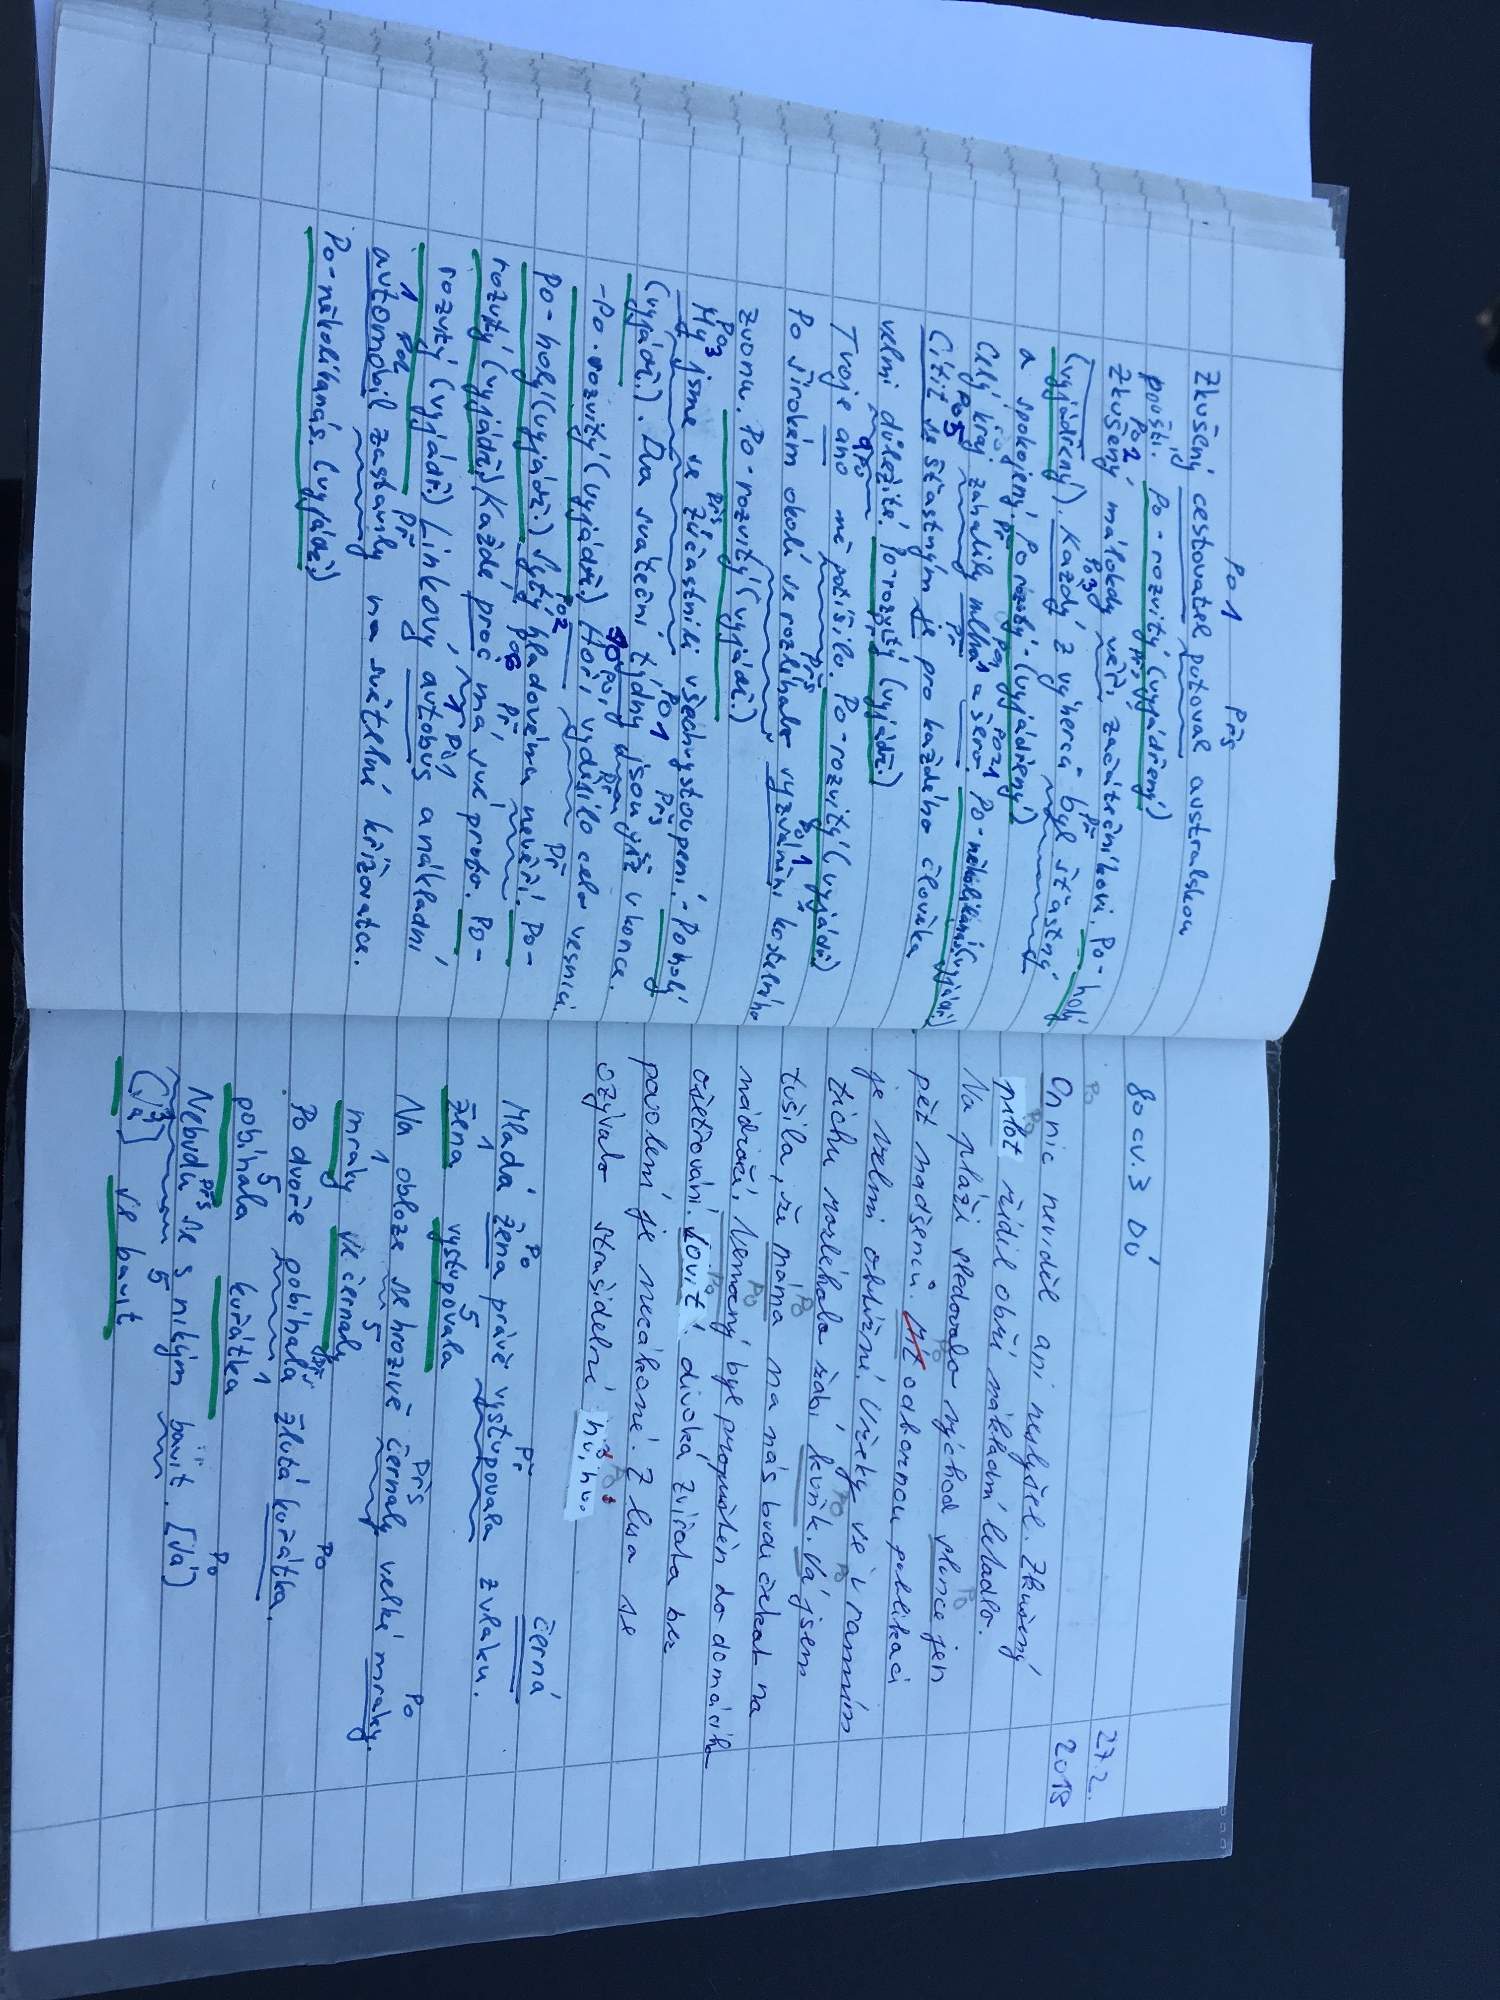 Po1 Přs
Zkušený cestovatel putoval australskou
pouští. Po - rozvitý (vyjádřený)
Po2 Přs
Zkušený málokdy věří začátečníkovi. Po - holý
Po3 Př
(vyjádřený). Každý z výherců byl šťastný
a spokojený. Po rozvitý - (vyjádřený)
Př Po1 Po1
Celý kraj zahalily mlha a šero. Po - několikanás. (vyjádř.)
Po5 Př
Cítit se šťastným je pro každého člověka
velmi důležité. Po-rozvitý (vyjádř.)
Po Přs
Tvoje ano mě potěšilo. Po-rozvitý (vyjádř.)
Přs Po1
Po širokém okolí se rozléhalo vyzvánění kostelního
zvonu. Po-rozvitý (vyjádř.)
Po3 Přs
My jsme se zúčastnili všech vystoupení. - Po holý
Po1 Přs
(vyjádř.). Dva sváteční týdny jsou již v konce.
- Po - rozvitý (vyjádř.) Hoří, vyděsilo celou vesnici.
Po2 Př
Po - holý (vyjádř.) Sytý hladovému nevěří. Po -
Po6 Př
rozvitý (vyjádř.) Každé proč má své proto. Po -
Po1
rozvitý (vyjádř.) Linkový autobus a nákladní
1 Po1 Př
automobil zastavily na světelné křižovatce.
Po - několikanás. (vyjádř.)
80 cv. 3 DÚ
27.2.
2018
Po
On nic neviděl ani neslyšel. Zkušený
Po
pilot řídil obří nákladní letadlo.
Po
Na pláži sledovalo východ slunce jen
Po
pět nadšenců. Mít odbornou publikaci
Po
je velmi obtížné. Vždy se v ranním
Po
tichu rozléhalo žabí kuňk. Já jsem
Po
tušila, že máma na nás bude čekat na
Po
nádraží. Nemocný byl propuštěn do domácího
Po
ošetřování. Lovit divoká zvířata bez
povolení je nezákonné. Z lesa se
Po
ozývalo strašidelné hú, hú.
Po Př černá
Mladá žena právě vystupovala z vlaku.
1 5
žena vystupovala
Přs Po
Na obloze se hrozivě černaly velké mraky.
1 5
mraky se černaly
Přs Po
Po dvoře pobíhala žlutá kuřátka.
5 1
pobíhala kuřátka
Přs Po
Nebudu se s nikým bavit. [Já]
3 5
(Já) se bavit